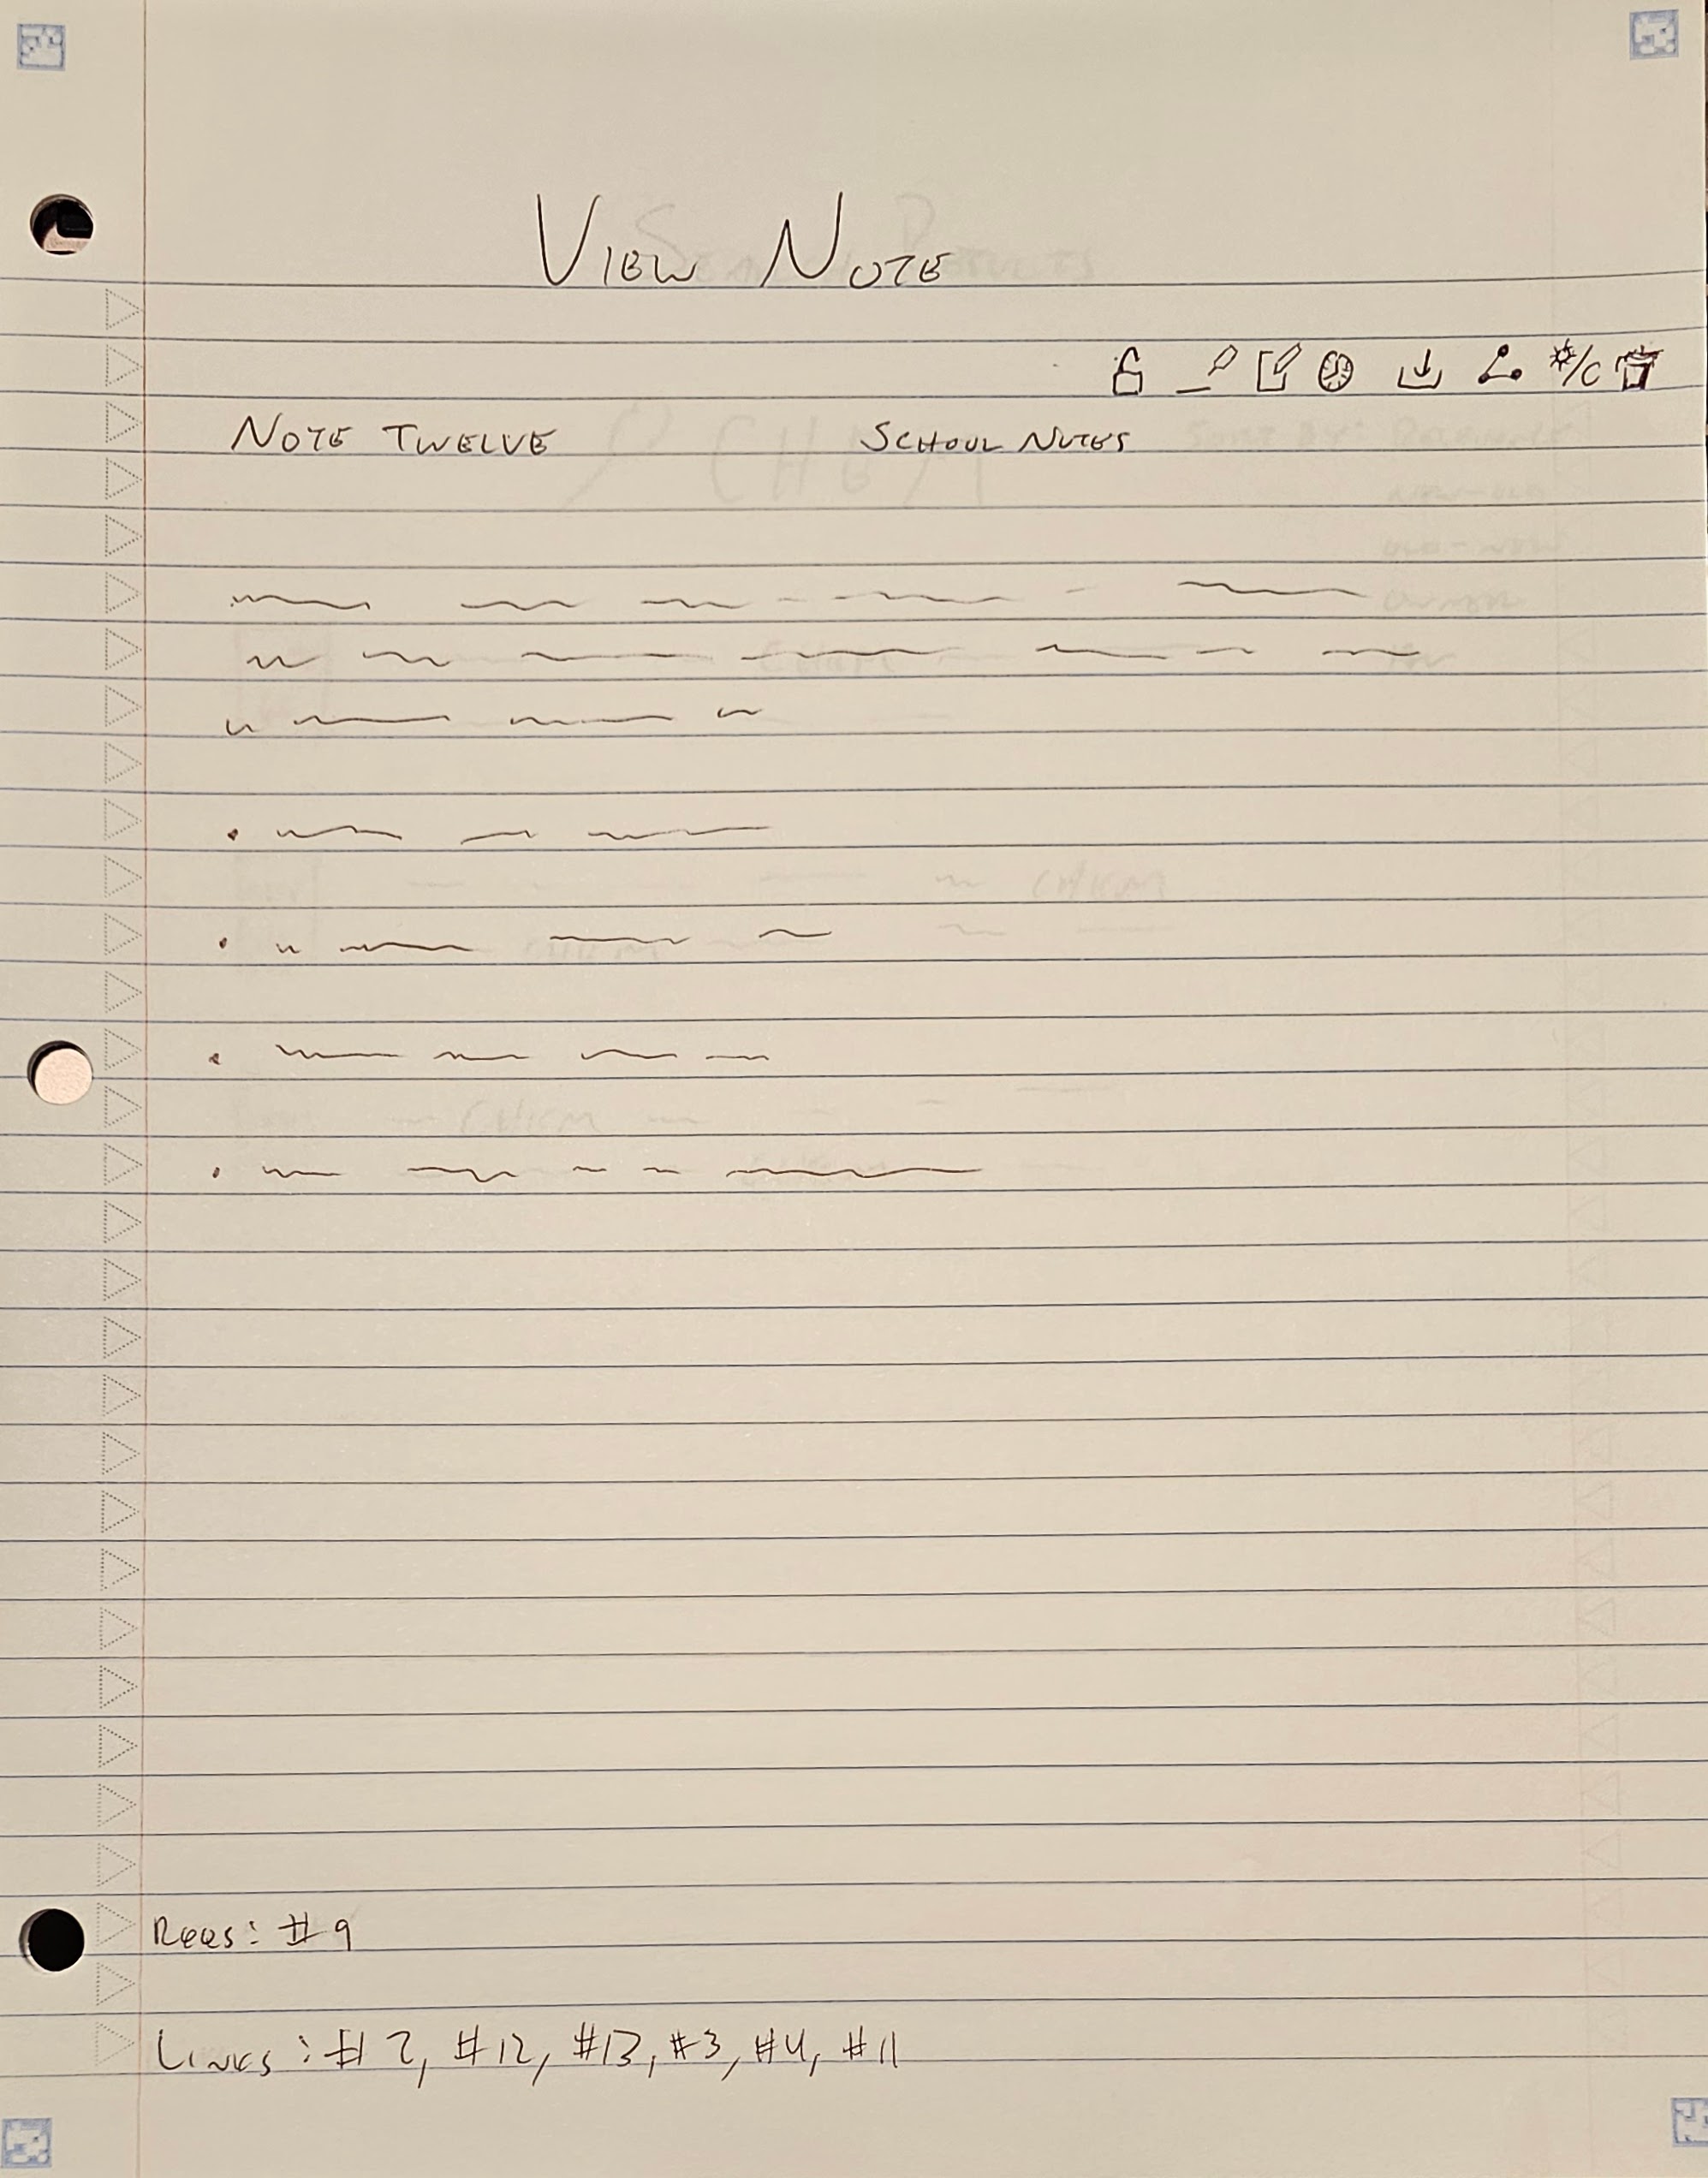 VIEW NOTE
NOTE TWELVE SCHOOL NOTES
Reqs: #9
LINKS: #2, #12, #13, #3, #4, #11